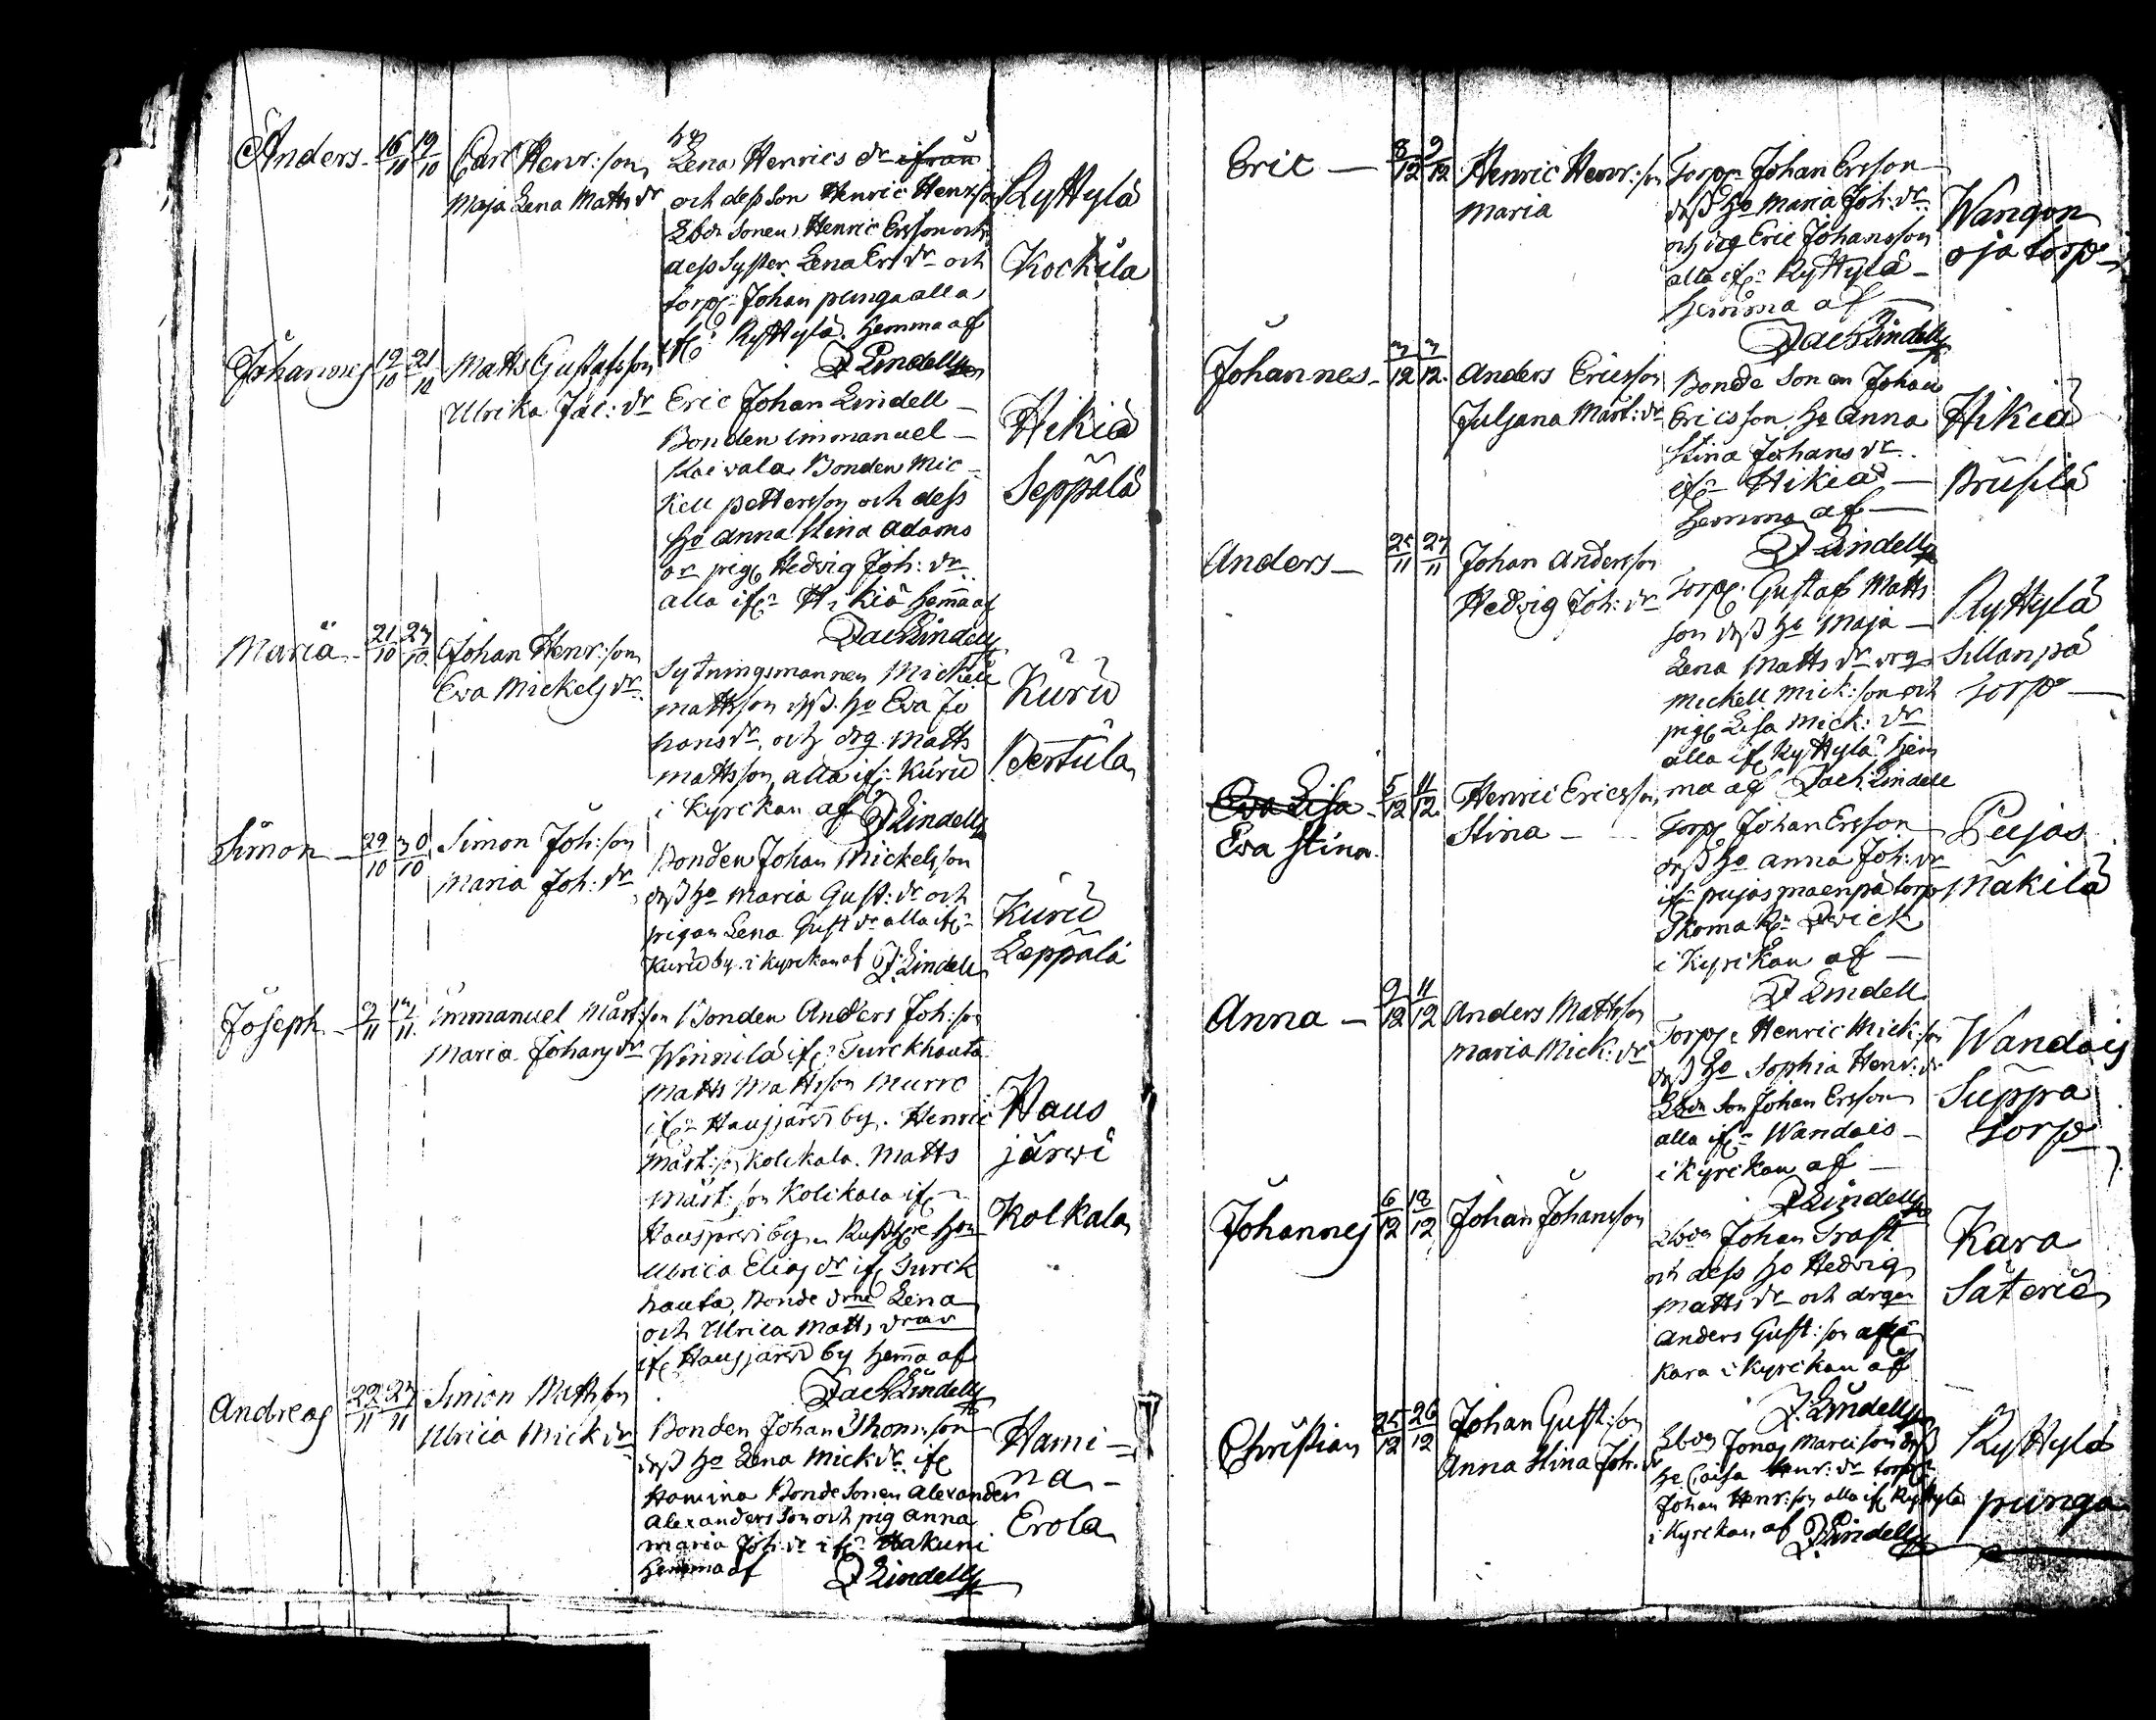 Anders - 16/10 19/10 Carl Henr:son
Maja Lena Matts dr
hu
Lena Henrics dr ifrån
och dess son Henric Henrsson
Sbdr Sonen Henric Ersson och
dess Syster Lena Ers dr och
torp: Johan punga alla
if: Ryttylä. hemma af
Z Lindell
Ryttylä
Kockila
Johannes 19/10 21/10 Matts Gustafsson
Ulrika Jac: dr
Eric Johan Lindell
Bonden immanuel
Kaivala Bonden Mic
kell pettersson och dess
ho anna Stina adams
dr pig Hedvig Joh: dr
alla if: Hikiä hema af
Zach Lindell
Hikiä
Seppälä
Maria - 21/10 27/10 Johan Henr:son
Eva Mickels dr
Sytningsmannen Mickell
mattsson dess ho Eva Jo
hans dr, och drg Matts
mattsson, alla if: Kuru
i Kyrckan af Z Lindell
Kuru
Bertula
Simon - 29/10 30/10 Simon Joh:son
Maria Joh: dr
Bonden Johan Mickelsson
dess ho Maria Gust: dr och
pigan Lena Gust dr alla if:
Kuru by i kyrckan af Z: Lindell
Kuru
Leppälä
Joseph - 9/11 12/11 immanuel Mårt:son
Maria Johans dr
Bonden Anders Joh:son
Winnilä if: Turckhauta
Matts Mattsson Murro
if: Hausjärvi by. Henric
Mårt:son Kolckala. Matts
Mårt:son Kolckala if:
Hausjärvi by
Ulrica Elias dr if Turck
hauta, Bonde drne Lena
och Ulrica Matts drar
if Hausjärvi by hema af
Zach Lindell
Haus
järvi
Kolkala
Andreas 22/11 27/11 Simon Mattsson
Ulrica Mick dr
Bonden Johan Thom:son
dess ho Lena Mick dr if
Hamina Bonde Sonen Alexander
Alexandersson och pig anna
maria Joh: dr if: Hakuni
hemma af Z Lindell
Hami-
na-
Erola
Eric - 8/12 9/12 Henric Henr:son
Maria
Torp Johan Ersson
dess ho Maria Joh: dr
och drg Eric Johansson
alla if: Ryttylä
hemma af
Zach Lindell
Wangon
oja torp
Johannes - 3/12 3/12 Anders Ericsson
Juljana Mårt: dr
Bonde Sonen Johan
Ericsson ho Anna
Stina Johans dr
if Hikiä
hemma af
Z Lindell
Hikiä
Brusilä
Anders - 25/11 27/11 Johan Andersson
Hedvig Joh: dr
Torp: Gustaf Matts
son dess ho Maja
Lena Matts dr drg
Mickell Mick:son och
pig Lisa Mick: dr
alla if Ryttylä hem
ma af Zach: Lindell
Ryttylä
Sillanpä
torp
Eva Lisa - 5/12 11/12 Henric Ericsson
Eva Stina Stina -
Torp Johan Ersson
dess ho anna Joh: dr
if pujas maenpä torp
Skomak: Qvick
i Kyrckan af
Z Lindell
Pujas
Mäkilä
Anna - 9/12 11/12 Anders Mattsson
Maria Mick: dr
Torp: Henric Mick:son
dess ho Sophia Henr: dr
Sbdn Son Johan Ersson
alla if: Wandais
i Kyrckan af
Z Lindell
Wandais
Suppra
torp
Johannes 6/12 18/12 Johan Johansson
Sbdn Johan Trast
och dess ho Hedvig
Matts dr och drgn
Anders Gust:son
Kara i Kyrckan af
Z. Lindell
Kara
Säteri
Christian 25/12 26/12 Johan Gust:son
Anna Stina Joh: dr
Sbdn Jonas Marci son dess
ho Caisa Henr: dr torp
Johan Henr:son alla if Ryttylä
i Kyrckan af Z Lindell
Ryttylä
punga